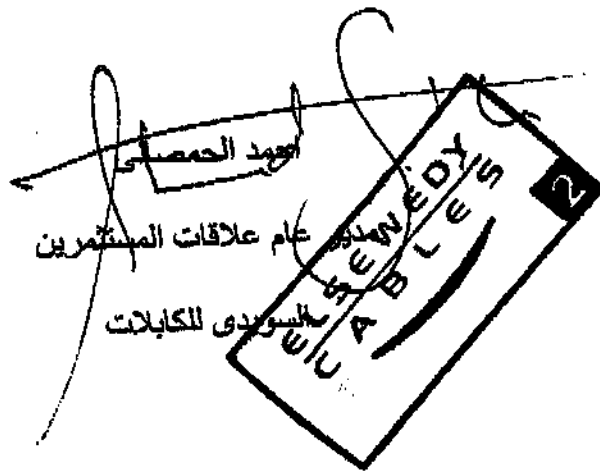 الحمصى
مدير عام علاقات المستثمرين
السويدى للكابلات
ELSEWEDY
CABLES
2